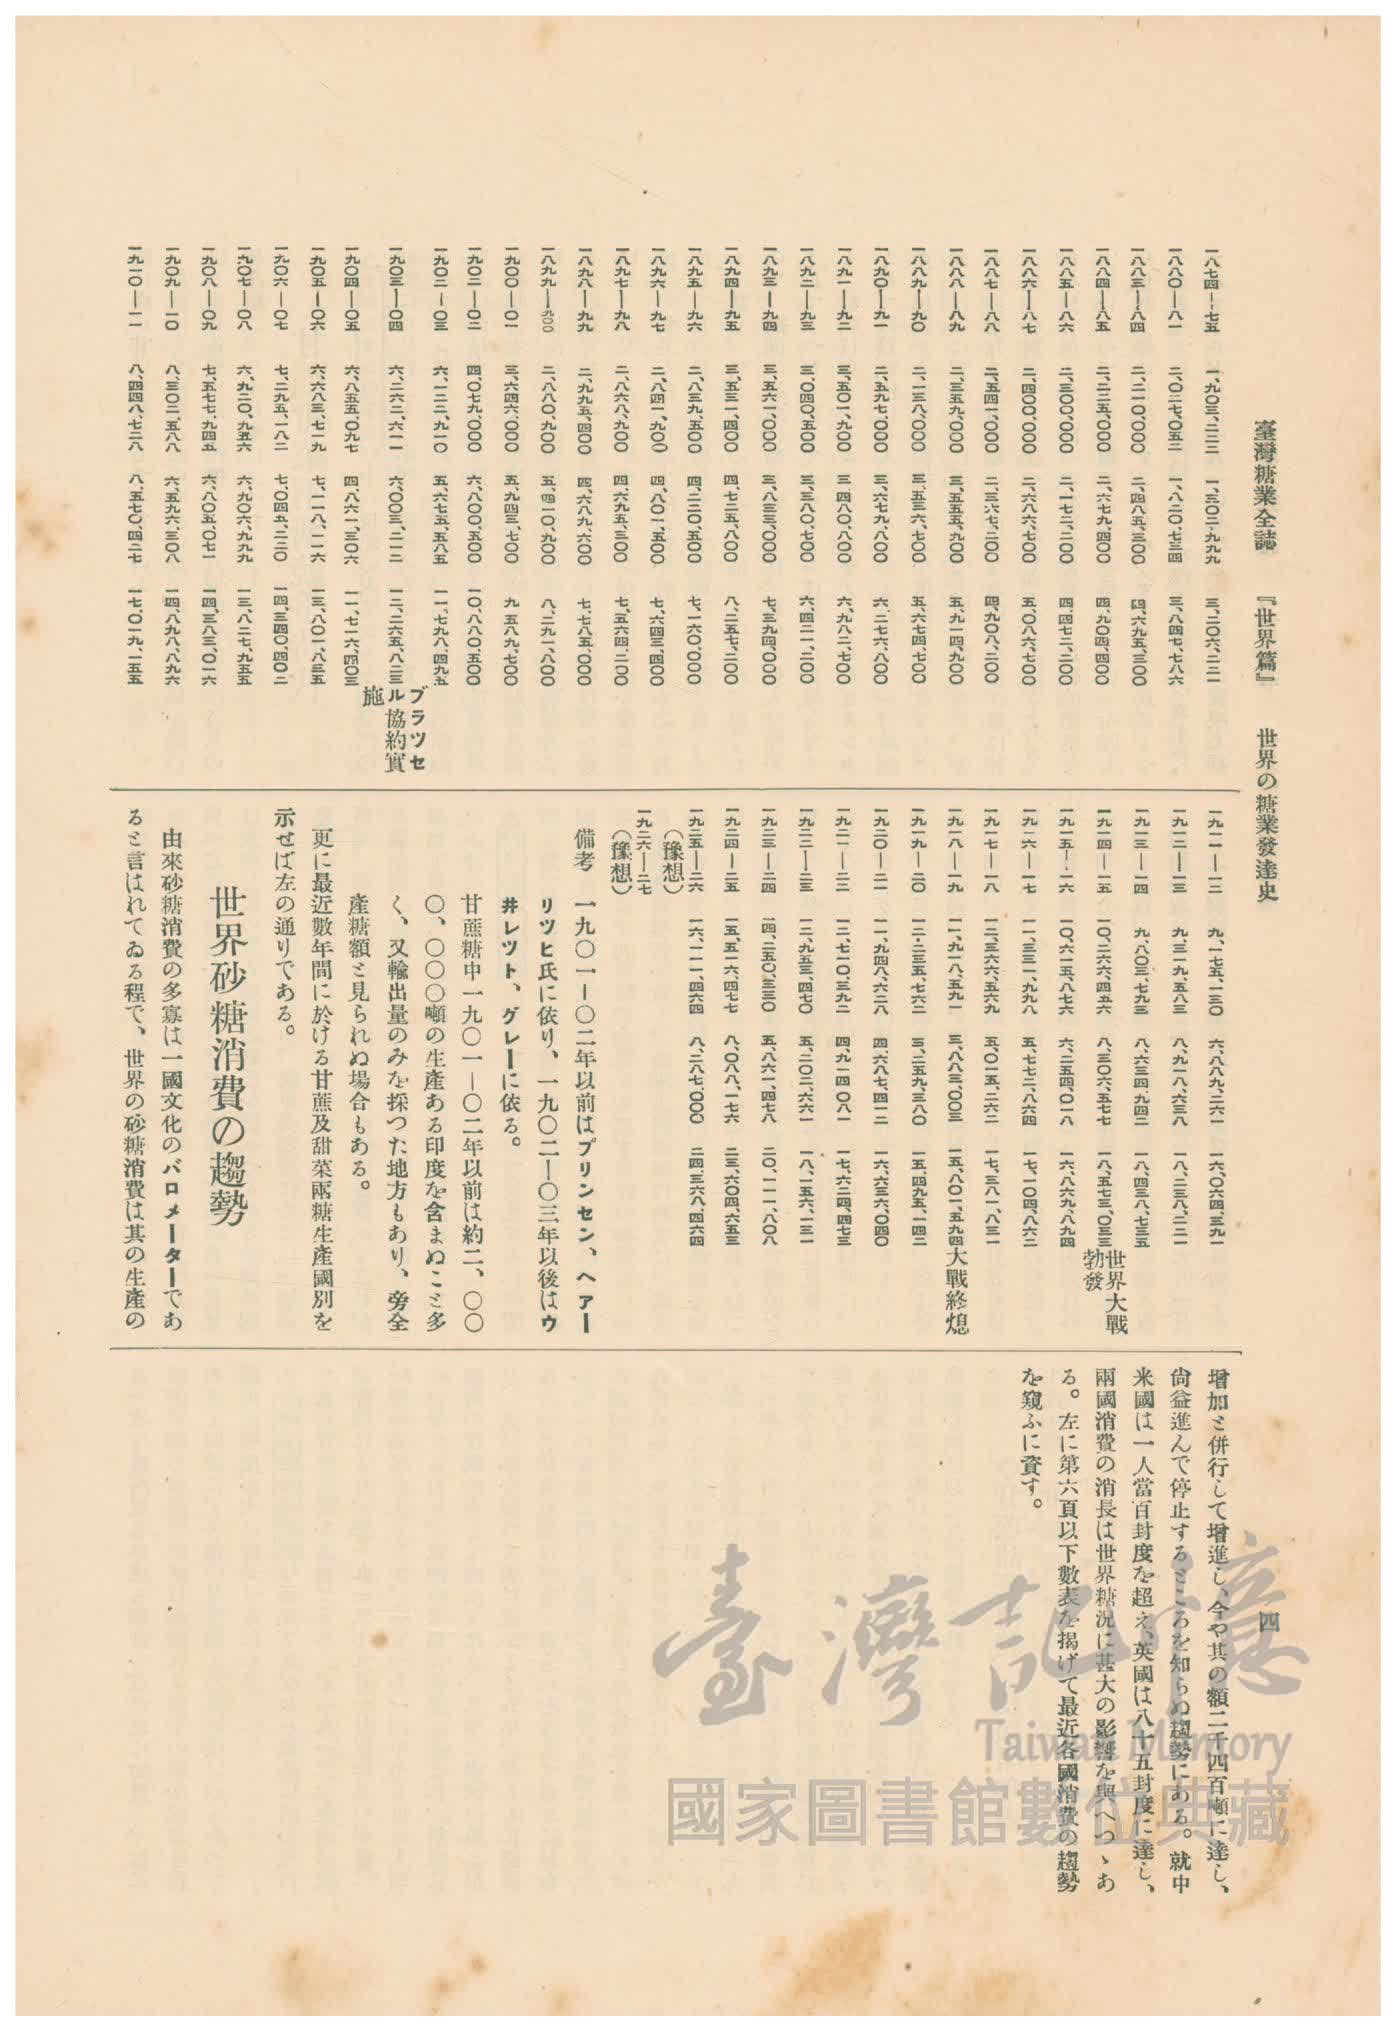 臺灣糖業全誌 『世界篇』 世界の糖業發達史 四
一八七四—七五 一、九〇三、二二二 一、三〇二、九九九 三、二〇六、二二一
一八八〇—八一 二、〇二七、〇五二 一、八二〇、七三四 三、八四七、七八六
一八八三—八四 二、二一〇、〇〇〇 二、四八五、三〇〇 四、六九五、三〇〇
一八八四—八五 二、二二五、〇〇〇 二、六七九、四〇〇 四、九〇四、四〇〇
一八八五—八六 二、三〇〇、〇〇〇 二、一七二、二〇〇 四、四七二、二〇〇
一八八六—八七 二、四〇〇、〇〇〇 二、六八六、七〇〇 五、〇八六、七〇〇
一八八七—八八 二、五四一、〇〇〇 二、三六七、二〇〇 四、九〇八、二〇〇
一八八八—八九 二、三五九、〇〇〇 三、五五五、九〇〇 五、九一四、九〇〇
一八八九—九〇 二、一三八、〇〇〇 三、五三六、七〇〇 五、六七四、七〇〇
一八九〇—九一 二、五九七、〇〇〇 三、六七九、八〇〇 六、二七六、八〇〇
一八九一—九二 三、五〇一、九〇〇 三、四八〇、八〇〇 六、九八二、七〇〇
一八九二—九三 三、〇四〇、五〇〇 三、三八〇、七〇〇 六、四二一、二〇〇
一八九三—九四 三、五六一、〇〇〇 三、八三三、〇〇〇 七、三九四、〇〇〇
一八九四—九五 三、五三一、四〇〇 四、七二五、八〇〇 八、二五七、二〇〇
一八九五—九六 二、八三九、五〇〇 四、二二〇、五〇〇 七、一六〇、〇〇〇
一八九六—九七 二、八四一、九〇〇 四、八〇一、五〇〇 七、六四三、四〇〇
一八九七—九八 二、八六八、九〇〇 四、六九五、三〇〇 七、五六四、二〇〇
一八九八—九九 二、九九五、四〇〇 四、六八九、六〇〇 七、七八五、〇〇〇
一八九九—九〇〇 二、八八〇、九〇〇 五、四一〇、九〇〇 八、二九一、八〇〇
一九〇〇—〇一 三、六四六、〇〇〇 五、九四三、七〇〇 九、五八九、七〇〇
一九〇一—〇二 四、〇七九、〇〇〇 六、八〇〇、五〇〇 一〇、八八〇、五〇〇
一九〇二—〇三 六、一二二、九一〇 五、六七五、五八五 一一、七九八、四九五
一九〇三—〇四 六、二六二、六一一 六、〇〇三、二一二 一二、二六五、八二三 ブラツセル協約實施
一九〇四—〇五 六、八五五、〇九七 四、八六一、三〇六 一一、七一六、四〇三
一九〇五—〇六 六、六八三、七一九 七、一一八、一一六 一三、八〇一、八三五
一九〇六—〇七 七、二九五、一八二 七、〇四五、二二〇 一四、三四〇、四〇二
一九〇七—〇八 六、九二〇、九五六 六、九〇六、九九九 一三、八二七、九五五
一九〇八—〇九 七、五七七、九四五 六、八〇五、〇七一 一四、三八三、〇一六
一九〇九—一〇 八、三〇二、五八八 六、五九六、三〇八 一四、八九八、八九六
一九一〇—一一 八、四四八、七二八 八、五七〇、四二七 一七、〇一九、一五五
一九一一—一二 九、一七五、一三〇 六、八八九、二六一 一六、〇六四、三九一
一九一二—一三 九、三一九、五八三 八、九一八、六三八 一八、二三八、二二一
一九一三—一四 九、八〇三、七九三 八、六三四、九四二 一八、四三八、七三五
一九一四—一五 一〇、二六六、四五六 八、三〇六、五七七 一八、五七三、〇三三 世界大戰勃發
一九一五—一六 一〇、六一五、八七六 六、二五四、〇一八 一六、八六九、八九四
一九一六—一七 一一、三三一、九九八 五、七七二、八六四 一七、一〇四、八六二
一九一七—一八 一二、三六六、五六九 五、〇一五、二六二 一七、三八一、八三一
一九一八—一九 一一、九一八、五九一 三、八八三、〇〇三 一五、八〇一、五九四 大戰終熄
一九一九—二〇 一二、二三五、七六二 三、二五九、三八〇 一五、四九五、一四二
一九二〇—二一 一一、九四八、六二八 四、六八七、四一二 一六、六三六、〇四〇
一九二一—二二 一二、七一〇、三九二 四、九一四、〇八一 一七、六二四、四七三
一九二二—二三 一二、九五三、四七〇 五、二〇二、六六一 一八、一五六、一三一
一九二三—二四 一四、二五〇、三三〇 五、八六一、四七八 二〇、一一一、八〇八
一九二四—二五 一五、五一六、四七七 八、〇八八、一七六 二三、六〇四、六五三
一九二五—二六 一六、一一一、四六四 八、二八七、〇〇〇 二四、三六八、四六四
（豫想）
一九二六—二七
（豫想）
備考 一九〇一—〇二年以前はプリンセン、ヘアー
リツヒ氏に依り、一九〇二—〇三年以後はウ
井レツト、グレーに依る。
甘蔗糖中一九〇一—〇二年以前は約二、〇〇
〇、〇〇〇噸の生產ある印度を含まぬこと多
く、又輸出量のみを採つた地方もあり、旁全
產糖額と見られぬ場合もある。
更に最近數年間に於ける甘蔗及甜菜兩糖生產國別を
示せば左の通りである。
世界砂糖消費の趨勢
由來砂糖消費の多寡は一國文化のバロメーターであ
ると言はれてゐる程で、世界の砂糖消費は其の生產の
增加と併行して增進し、今や其の額二千四百噸に達し、
尙益進んで停止するところを知らぬ趨勢にある。就中
米國は一人當百封度を超え、英國は八十五封度に達し、
兩國消費の消長は世界糖況に甚大の影響を與へつゝあ
る。左に第六頁以下數表を揭げて最近各國消費の趨勢
を窺ふに資す。
臺灣記憶
Taiwan Memory
國家圖書館數位典藏